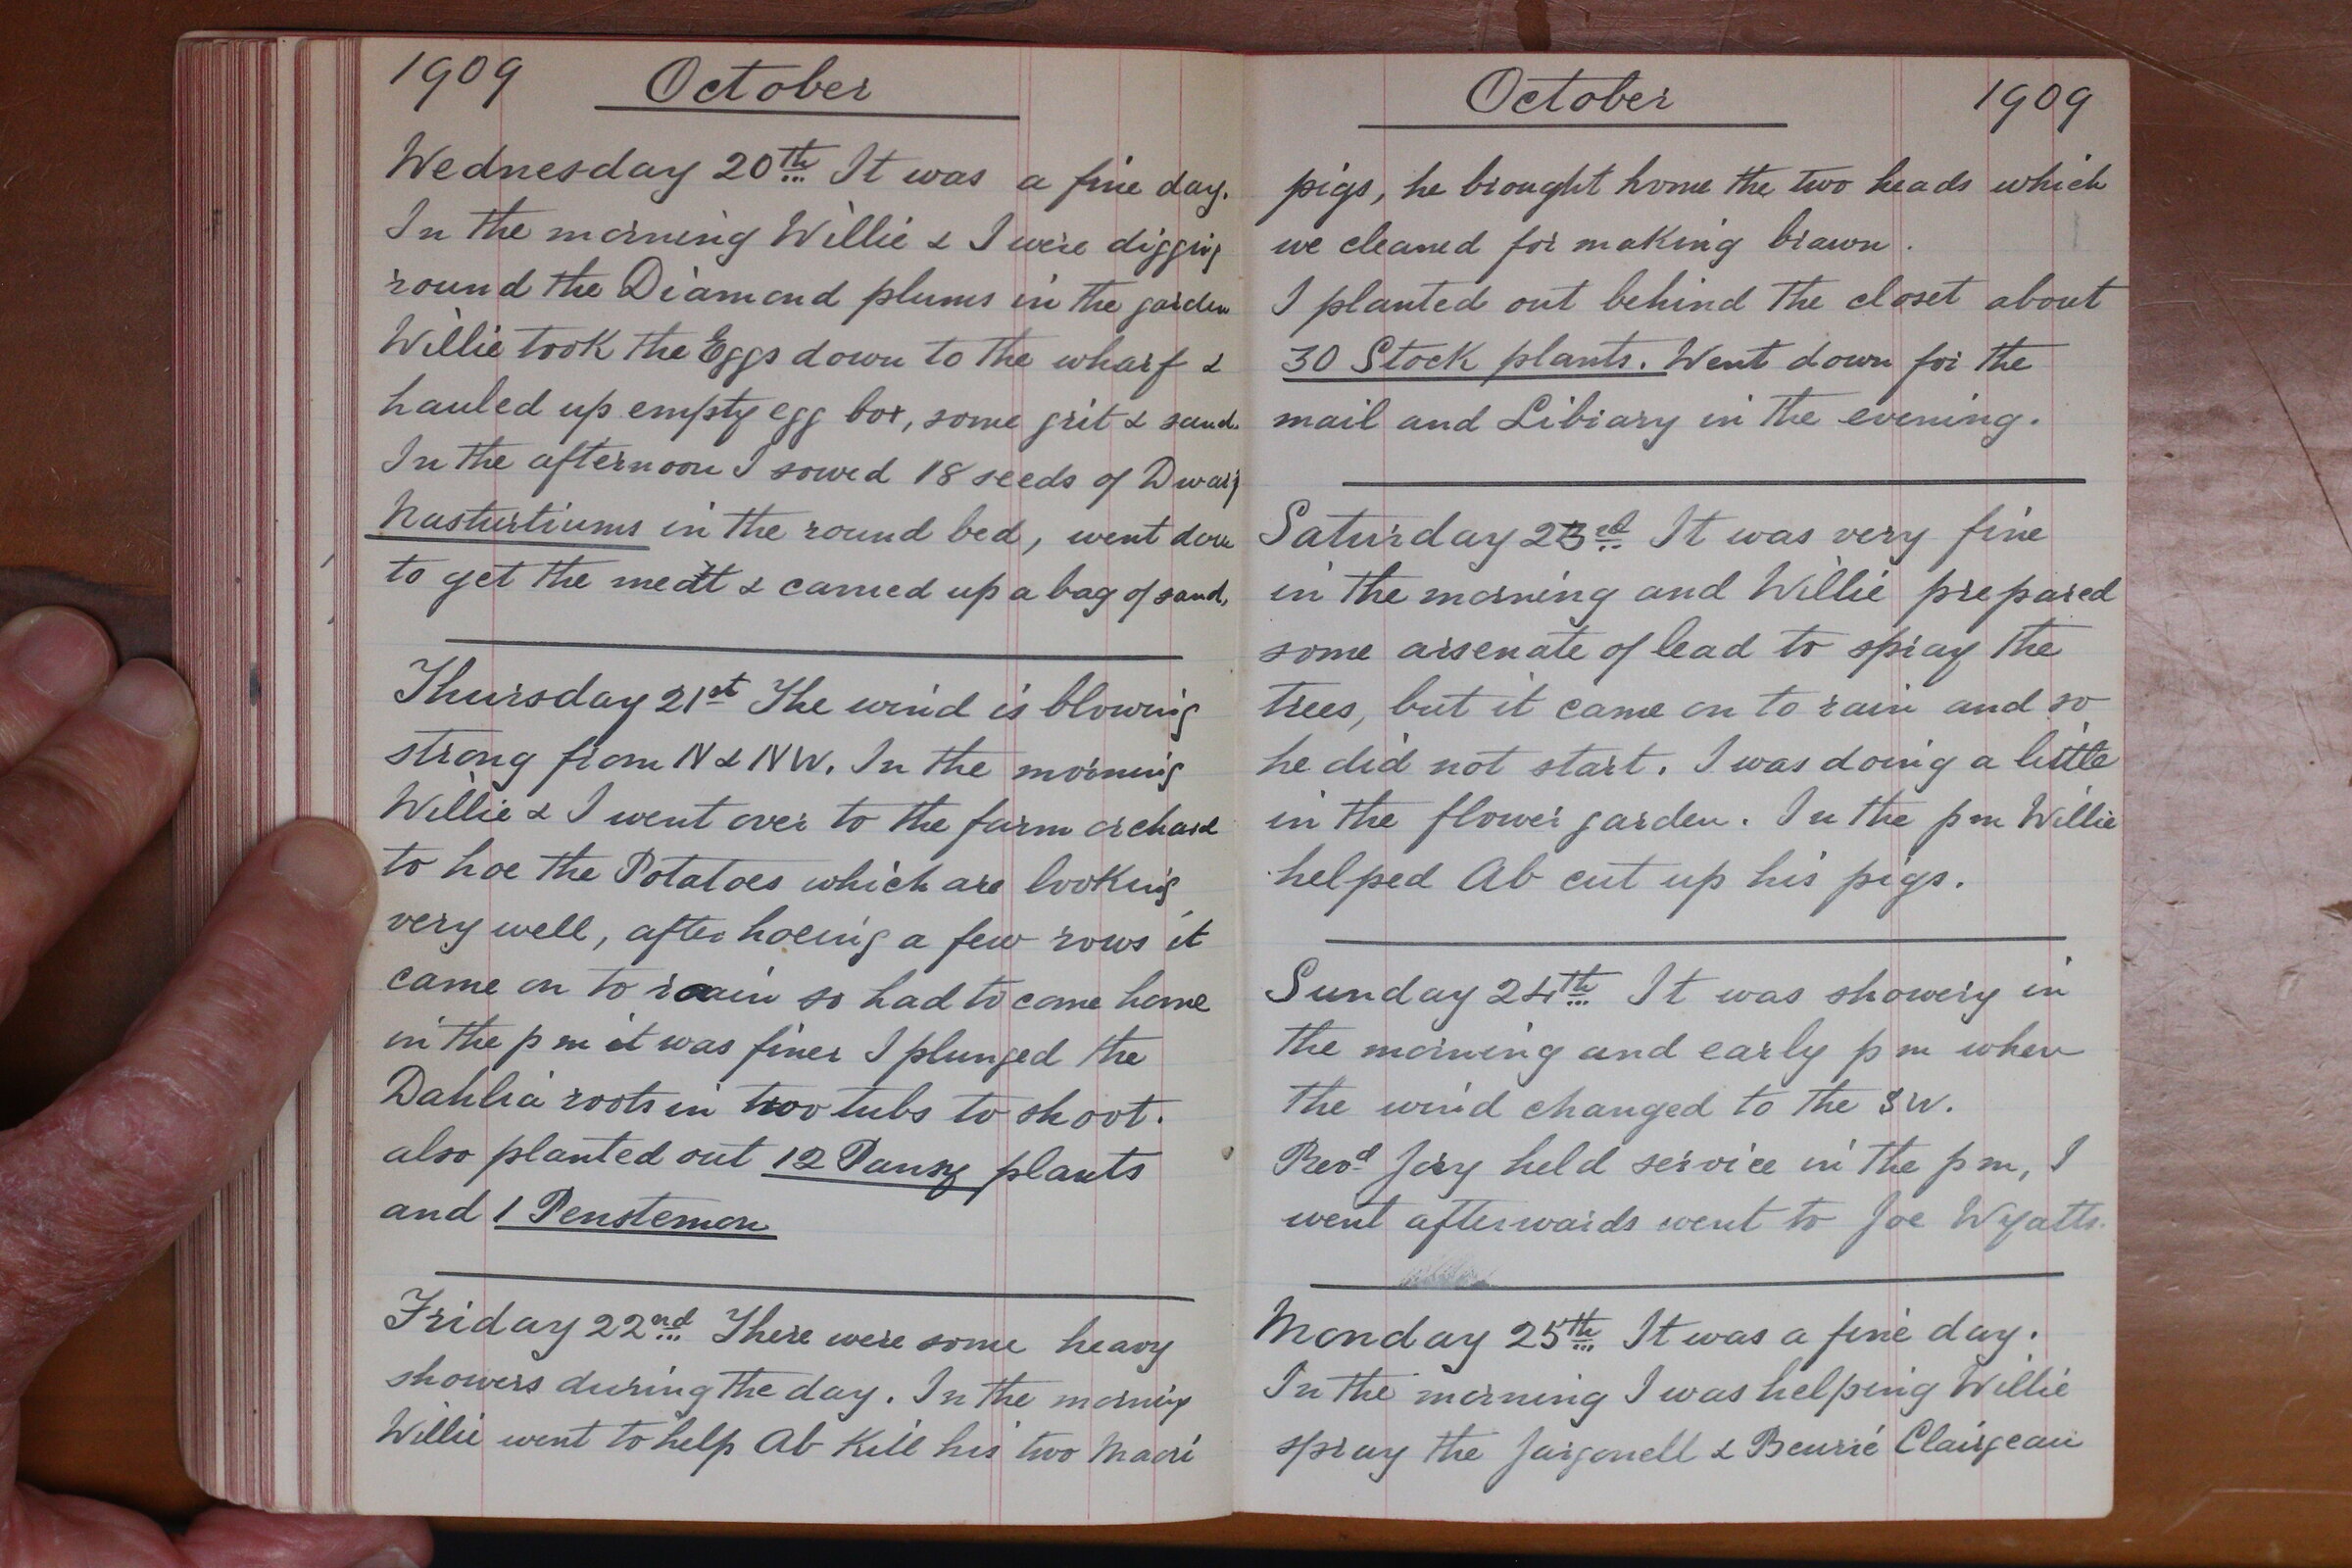 1909 October
Wednesday 20th It was a fine day.
In the morning Willie & I were digging
round the Diamond plums in the garden
Willie took the Eggs down to the wharf &
hauled up empty egg box, some grit & sand.
In the afternoon I sowed 18 seeds of Dwarf
Nasturtiums in the round bed, went down
to get the meat & carried up a bag of sand,
Thursday 21st The wind is blowing
strong from N & NW. In the morning
Willie & I went over to the farm orchard
to hoe the Potatoes which are looking
very well, after hoeing a few rows it
came on to rain so had to come home
in the pm it was finer I plunged the
Dahlia roots in two tubs to shoot.
also planted out 12 Pansy plants
and 1 Penstemon
Friday 22nd There were some heavy
showers during the day. In the morning
Willie went to help Ab kill his two Maori
October 1909
pigs, he brought home the two heads which
we cleaned for making brawn.
I planted out behind the closet about
30 Stock plants. Went down for the
mail and Library in the evening.
Saturday 23rd It was very fine
in the morning and Willie prepared
some arsenate of lead to spray the
trees, but it came on to rain and so
he did not start. I was doing a little
in the flower garden. In the pm Willie
helped Ab cut up his pigs.
Sunday 24th It was showery in
the morning and early pm when
the wind changed to the SW.
Revd Jory held service in the pm, I
went afterwards went to Joe Wyatts.
Monday 25th It was a fine day.
In the morning I was helping Willie
spray the Jargonell & Beurré Clairgeau